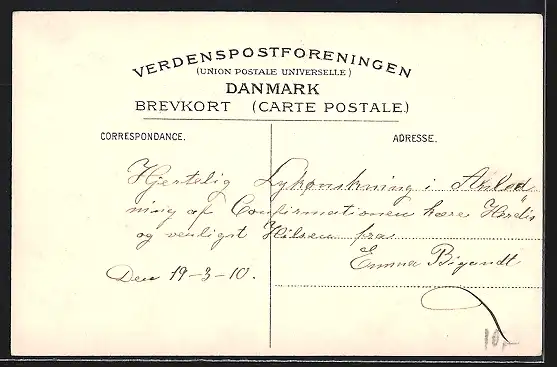 VERDENSPOSTFORENINGEN
(UNION POSTALE UNIVERSELLE)
DANMARK
BREVKORT (CARTE POSTALE.)
CORRESPONDANCE.
ADRESSE.
Hjertelig Lykønskning i Anled
ning af Confirmationen kære
og venligst Hilsen fra
Emma
Den 19-3-10.
10,-